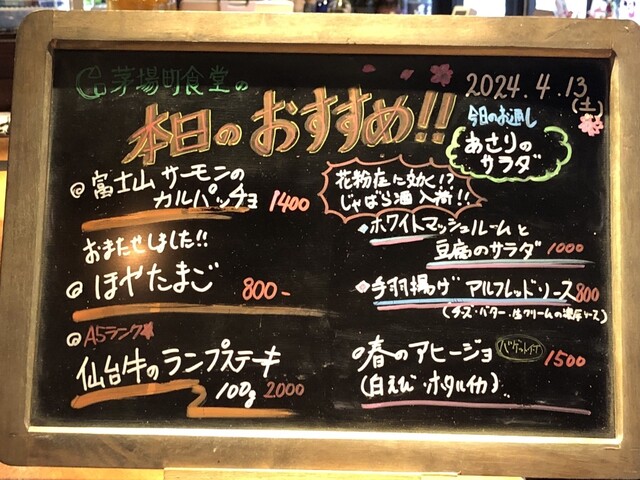 茅場町食堂の
本日のおすすめ!!
2024.4.13
(土)
今日のお通し
あさりの
サラダ
富士山サーモンの
カルパッチョ 1400
おまたせしました!!
ほやたまご 800-
A5ランク
仙台牛のランプステーキ
100g 2000
花粉症に効く!?
じゃばら酒入荷!!
ホワイトマッシュルームと
豆腐のサラダ 1000
手羽揚げ アルフレッド・ソース 800
(チーズ・バター・生クリームの濃厚ソース)
春のアヒージョ バゲット付 1500
(白えび・ホタルイカ)